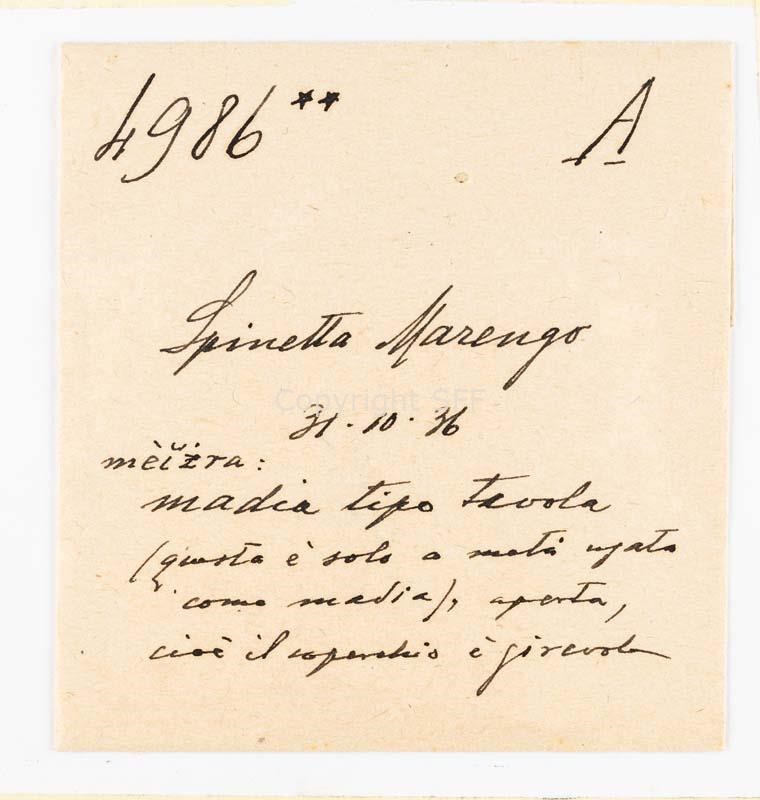 4986** A
Spinetta Marengo
Copyright SFF
31·10·36
mèižra:
madia tipo tavola
(questa è solo a metà usata
come madia), aperta,
cioè il coperchio è girevole